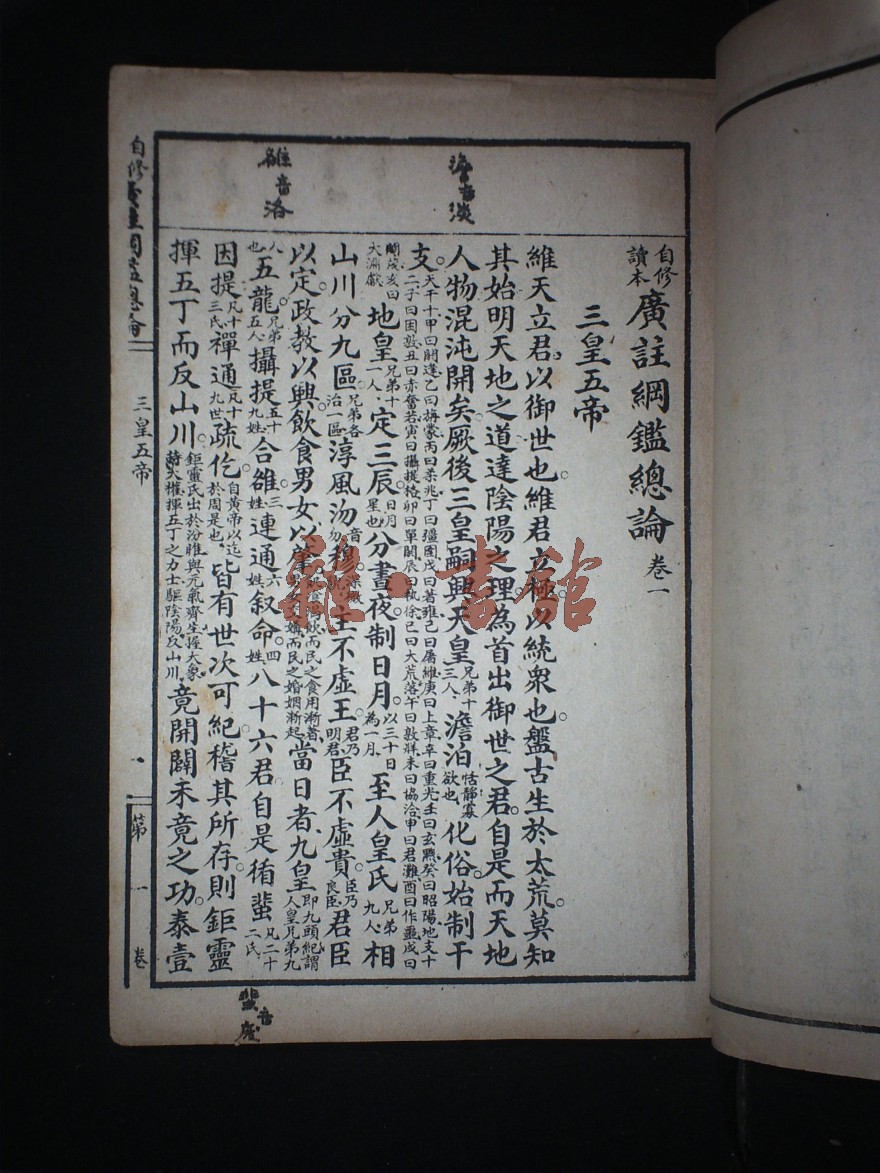 自修讀本 廣註綱鑑總論 卷一
三皇五帝
維天立君以御世也維君立極以統衆也盤古生於太荒莫知
其始明天地之道達陰陽之理為首出御世之君自是而天地
人物混沌開矣厥後三皇嗣興天皇兄弟十三人澹泊恬靜寡欲也化俗始制干
支天干十甲曰閼逢乙曰旃蒙丙曰柔兆丁曰彊圉戊曰著雍己曰屠維庚曰上章辛曰重光壬曰玄黓癸曰昭陽地支十二子曰困敦丑曰赤奮若寅曰攝提格卯曰單閼辰曰執徐巳曰大荒落午曰敦牂未曰協洽申曰君灘酉曰作噩戌曰
閹茂亥曰大淵獻地皇兄弟十一人定三辰日月星也分晝夜制日月以三十日為一月至人皇氏兄弟九人相
山川分九區兄弟各治一區淳風沕音勿穆王不虛王君乃明君臣不虛貴臣乃良臣君臣
以定政教以興飲食男女以肇而民之食用漸著而民之婚姻漸起當日者九皇即九頭紀謂人皇兄弟九
人也五龍兄弟五人攝提五十九姓合雒三姓連通六姓叙命四姓八十六君自是循蜚凡二十二氏
因提凡十三氏禪通凡十九世疏仡自黃帝以迄於周是也皆有世次可紀稽其所存則鉅靈
揮五丁而反山川鉅靈氏出於汾睢與元氣齊生握大象持大權揮五丁之力士驅陰陽反山川竟開闢未竟之功泰壹
澹音淡
雒音洛
蜚音廢
自修
綱鑑總論
三皇五帝
第一卷
雜·書館